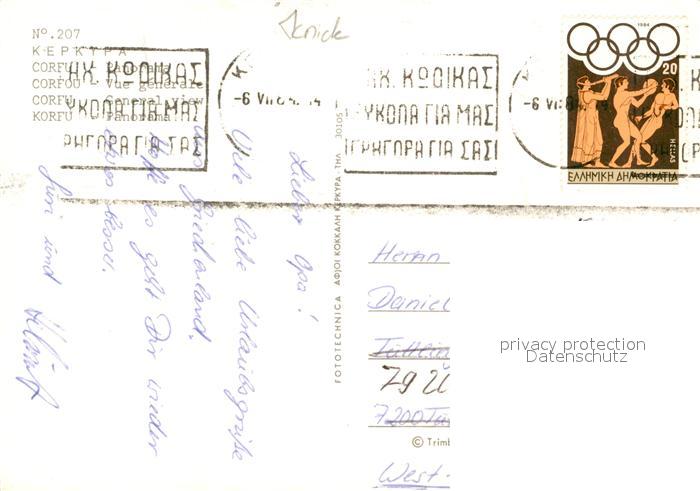 Nº.207
ΚΕΡΚΥΡΑ
CORFU - Panorama
CORFOU - Vue générale
CORFU - General view
KORFU - Panorama
ΗΧ. ΚΩΔΙΚΑΣ
ΥΚΟΛΑ ΓΙΑ ΜΑΣ
ΡΗΓΟΡΑ ΓΙΑ ΣΑΣ
-6 VII 84
ΗΧ. ΚΩΔΙΚΑΣ
ΥΚΟΛΑ ΓΙΑ ΜΑΣ
ΓΡΗΓΟΡΑ ΓΙΑ ΣΑΣ
-6 VII 84
1984
20
HELLAS
ΕΛΛΗΝΙΚΗ ΔΗΜΟΚΡΑΤΙΑ
Lieber Opa!
Viele liebe Urlaubsgrüße
aus Griechenland.
Hoffe es geht Dir wieder
etwas besser.
und
FOTOTECHNICA ΑΦΟΙ ΚΟΚΚΑΛΗ ΚΕΡΚΥΡΑ ΤΗΛ. 30105
Herrn
Daniel
Tuttlin
7200 Tu
West-
© Trimb
privacy protection
Datenschutz